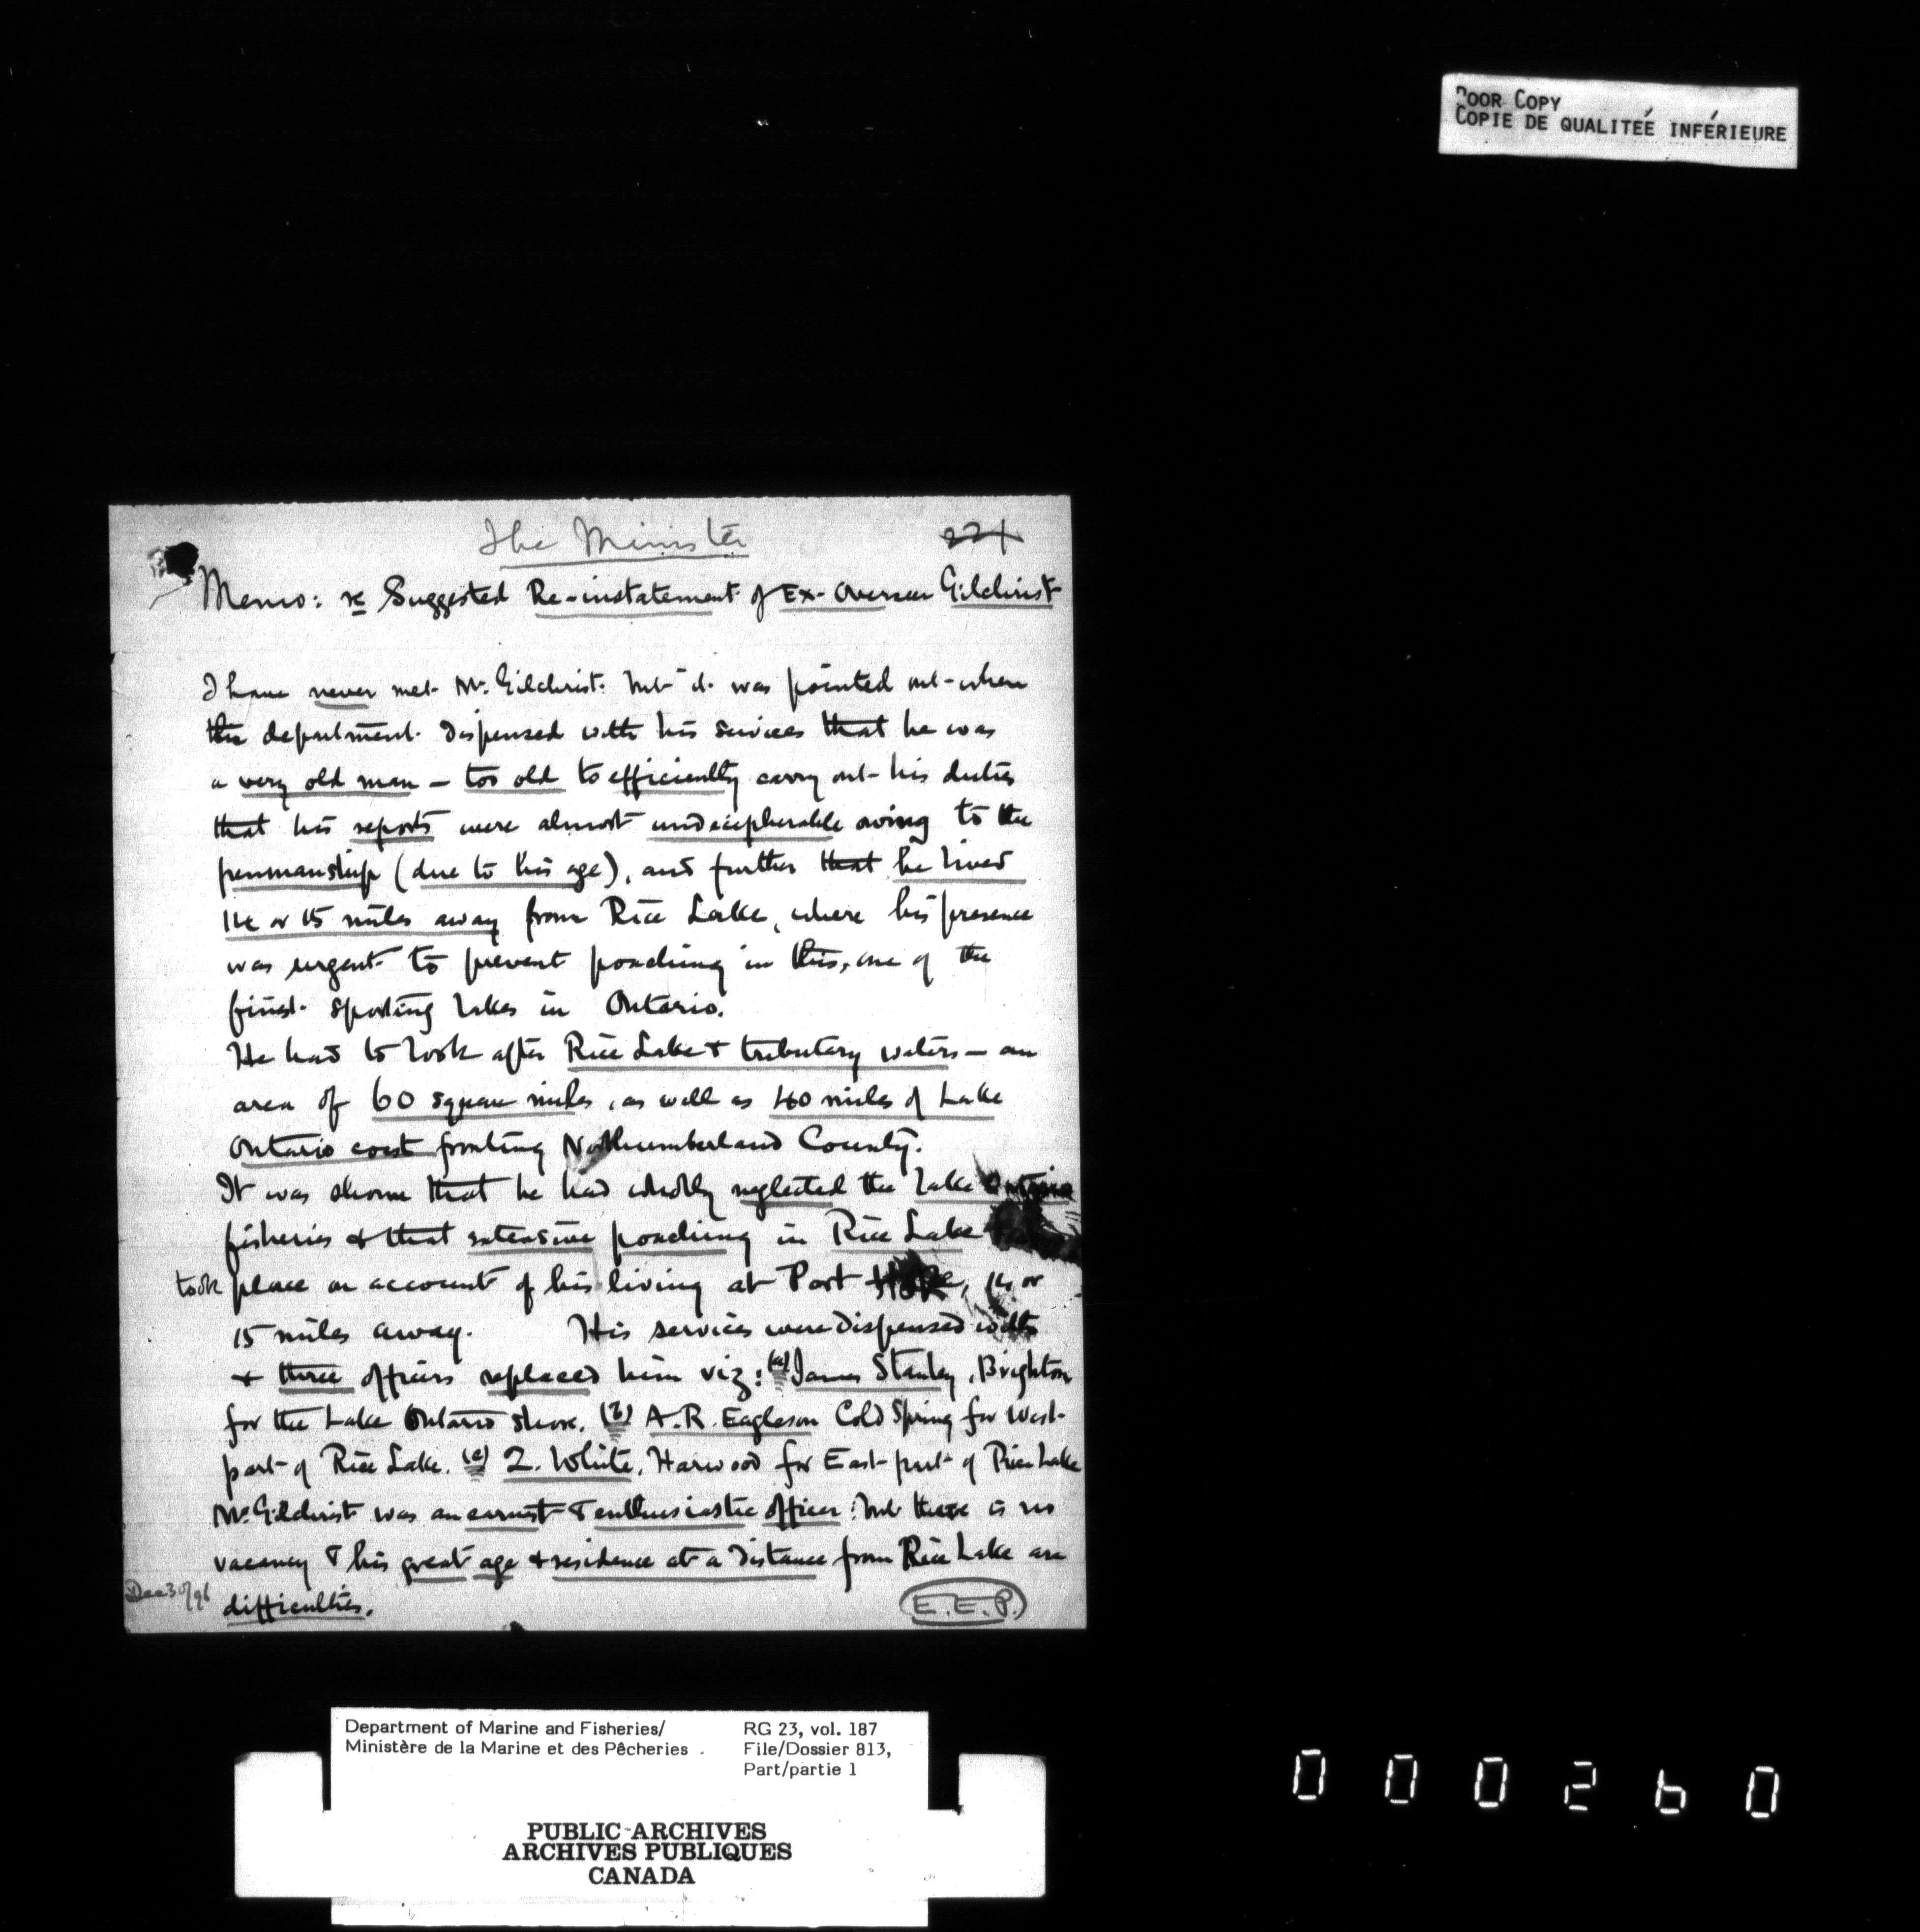 POOR COPY
COPIE DE QUALITEÉ INFÉRIEURE
The Minister
221
Memo: re Suggested Re-instatement of Ex-Overseer Gilchrist
I have never met Mr. Gilchrist: but it was pointed out when
the department dispensed with his services that he was
a very old man – too old to efficiently carry out his duties
that his reports were almost undecipherable owing to the
penmanship (due to his age), and further that he lived
14 or 15 miles away from Rice Lake, where his presence
was urgent to prevent poaching in this, one of the
finest sporting lakes in Ontario.
He had to look after Rice Lake & tributary waters – an
area of 60 square miles, as well as 40 miles of Lake
Ontario coast fronting Northumberland County.
It was shown that he had wholly neglected the Lake Ontario
fisheries & that extensive poaching in Rice Lake
took place on account of his living at Port Hope, 14 or
15 miles away. His services were dispensed with
& three officers replaced him viz: (a) James Stanley, Brighton
for the Lake Ontario shore. (b) A.R. Eagleson Cold Spring for West
part of Rice Lake. (c) Z. White, Harwood for East part of Rice Lake
Mr. Gilchrist was an earnest & enthusiastic officer: but there is no
vacancy & his great age & residence at a distance from Rice Lake are
difficulties.
Dec 30/96
E.E.P.
Department of Marine and Fisheries/
Ministère de la Marine et des Pêcheries
RG 23, vol. 187
File/Dossier 813,
Part/partie 1
PUBLIC ARCHIVES
ARCHIVES PUBLIQUES
CANADA
000260